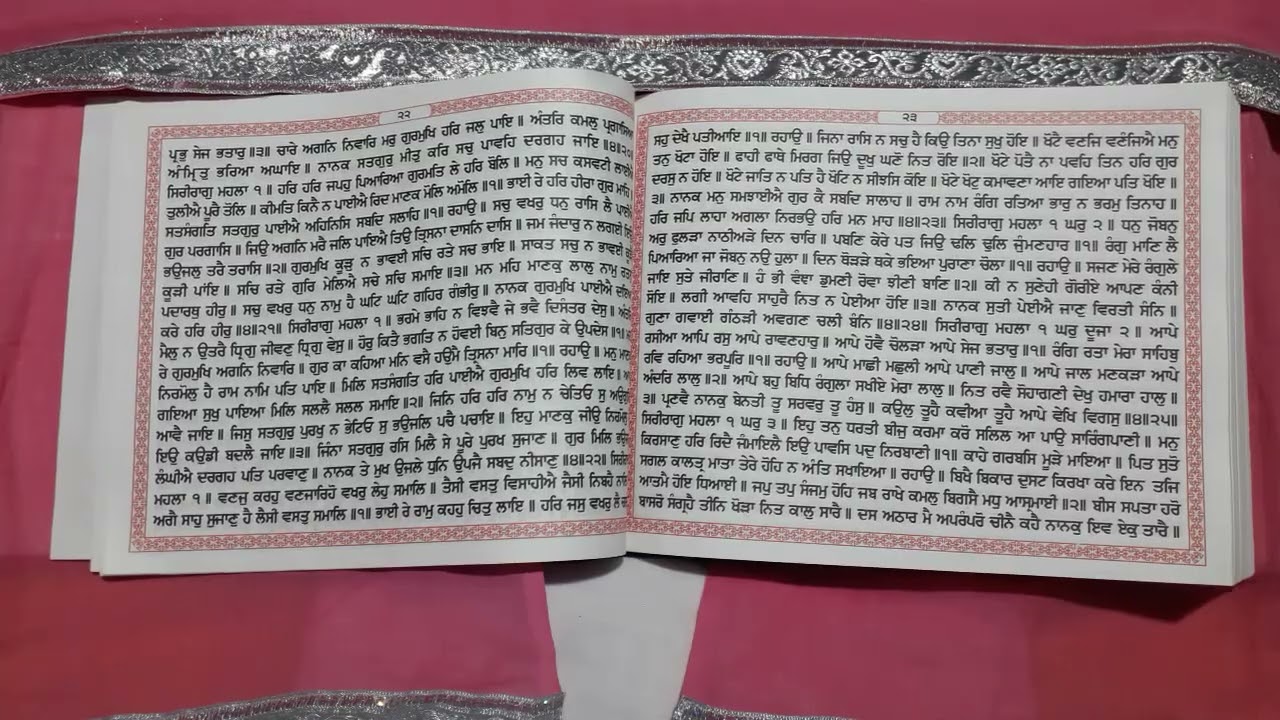 ੨੨
ਪ੍ਰਭੁ ਸੇਜ ਭਤਾਰੁ ॥੩॥ ਚਾਰੇ ਅਗਨਿ ਨਿਵਾਰਿ ਮਰੁ ਗੁਰਮੁਖਿ ਹਰਿ ਜਲੁ ਪਾਇ ॥ ਅੰਤਰਿ ਕਮਲੁ ਪ੍ਰਗਾਸਿਆ
ਅੰਮ੍ਰਿਤੁ ਭਰਿਆ ਅਘਾਇ ॥ ਨਾਨਕ ਸਤਗੁਰੁ ਮੀਤੁ ਕਰਿ ਸਚੁ ਪਾਵਹਿ ਦਰਗਹ ਜਾਇ ॥੪॥੨੦॥
ਸਿਰੀਰਾਗੁ ਮਹਲਾ ੧ ॥ ਹਰਿ ਹਰਿ ਜਪਹੁ ਪਿਆਰਿਆ ਗੁਰਮਤਿ ਲੇ ਹਰਿ ਬੋਲਿ ॥ ਮਨੁ ਸਚ ਕਸਵਟੀ ਲਾਈਐ
ਤੁਲੀਐ ਪੂਰੈ ਤੋਲਿ ॥ ਕੀਮਤਿ ਕਿਨੈ ਨ ਪਾਈਐ ਰਿਦ ਮਾਣਕ ਮੋਲਿ ਅਮੋਲਿ ॥੧॥ ਭਾਈ ਰੇ ਹਰਿ ਹੀਰਾ ਗੁਰ ਮਾਹਿ ॥
ਸਤਸੰਗਤਿ ਸਤਗੁਰੁ ਪਾਈਐ ਅਹਿਨਿਸਿ ਸਬਦਿ ਸਲਾਹਿ ॥੧॥ ਰਹਾਉ ॥ ਸਚੁ ਵਖਰੁ ਧਨੁ ਰਾਸਿ ਲੈ ਪਾਈਐ
ਗੁਰ ਪਰਗਾਸਿ ॥ ਜਿਉ ਅਗਨਿ ਮਰੈ ਜਲਿ ਪਾਇਐ ਤਿਉ ਤ੍ਰਿਸਨਾ ਦਾਸਨਿ ਦਾਸਿ ॥ ਜਮ ਜੰਦਾਰੁ ਨ ਲਗਈ ਇਉ
ਭਉਜਲੁ ਤਰੈ ਤਰਾਸਿ ॥੨॥ ਗੁਰਮੁਖਿ ਕੂੜੁ ਨ ਭਾਵਈ ਸਚਿ ਰਤੇ ਸਚ ਭਾਇ ॥ ਸਾਕਤ ਸਚੁ ਨ ਭਾਵਈ ਕੂੜੈ
ਕੂੜੀ ਪਾਂਇ ॥ ਸਚਿ ਰਤੇ ਗੁਰਿ ਮੇਲਿਐ ਸਚੇ ਸਚਿ ਸਮਾਇ ॥੩॥ ਮਨ ਮਹਿ ਮਾਣਕੁ ਲਾਲੁ ਨਾਮੁ ਰਤਨੁ
ਪਦਾਰਥੁ ਹੀਰੁ ॥ ਸਚੁ ਵਖਰੁ ਧਨੁ ਨਾਮੁ ਹੈ ਘਟਿ ਘਟਿ ਗਹਿਰ ਗੰਭੀਰੁ ॥ ਨਾਨਕ ਗੁਰਮੁਖਿ ਪਾਈਐ ਦਇਆ
ਕਰੇ ਹਰਿ ਹੀਰੁ ॥੪॥੨੧॥ ਸਿਰੀਰਾਗੁ ਮਹਲਾ ੧ ॥ ਭਰਮੇ ਭਾਹਿ ਨ ਵਿਝਵੈ ਜੇ ਭਵੈ ਦਿਸੰਤਰ ਦੇਸੁ ॥ ਅੰਤਰਿ
ਮੈਲੁ ਨ ਉਤਰੈ ਧ੍ਰਿਗੁ ਜੀਵਣੁ ਧ੍ਰਿਗੁ ਵੇਸੁ ॥ ਹੋਰੁ ਕਿਤੈ ਭਗਤਿ ਨ ਹੋਵਈ ਬਿਨੁ ਸਤਿਗੁਰ ਕੇ ਉਪਦੇਸ ॥੧॥ ਮਨ
ਰੇ ਗੁਰਮੁਖਿ ਅਗਨਿ ਨਿਵਾਰਿ ॥ ਗੁਰ ਕਾ ਕਹਿਆ ਮਨਿ ਵਸੈ ਹਉਮੈ ਤ੍ਰਿਸਨਾ ਮਾਰਿ ॥੧॥ ਰਹਾਉ ॥ ਮਨੁ ਮਾਣਕੁ
ਨਿਰਮੋਲੁ ਹੈ ਰਾਮ ਨਾਮਿ ਪਤਿ ਪਾਇ ॥ ਮਿਲਿ ਸਤਸੰਗਤਿ ਹਰਿ ਪਾਈਐ ਗੁਰਮੁਖਿ ਹਰਿ ਲਿਵ ਲਾਇ ॥ ਆਪੁ
ਗਇਆ ਸੁਖੁ ਪਾਇਆ ਮਿਲਿ ਸਲਲੈ ਸਲਲ ਸਮਾਇ ॥੨॥ ਜਿਨਿ ਹਰਿ ਹਰਿ ਨਾਮੁ ਨ ਚੇਤਿਓ ਸੁ ਅਉਗੁਣਿ
ਆਵੈ ਜਾਇ ॥ ਜਿਸੁ ਸਤਗੁਰੁ ਪੁਰਖੁ ਨ ਭੇਟਿਓ ਸੁ ਭਉਜਲਿ ਪਚੈ ਪਚਾਇ ॥ ਇਹੁ ਮਾਣਕੁ ਜੀਉ ਨਿਰਮੋਲੁ ਹੈ
ਇਉ ਕਉਡੀ ਬਦਲੈ ਜਾਇ ॥੩॥ ਜਿੰਨਾ ਸਤਗੁਰੁ ਰਸਿ ਮਿਲੈ ਸੇ ਪੂਰੇ ਪੁਰਖ ਸੁਜਾਣ ॥ ਗੁਰ ਮਿਲਿ ਭਉਜਲੁ
ਲੰਘੀਐ ਦਰਗਹ ਪਤਿ ਪਰਵਾਣੁ ॥ ਨਾਨਕ ਤੇ ਮੁਖ ਉਜਲੇ ਧੁਨਿ ਉਪਜੈ ਸਬਦੁ ਨੀਸਾਣੁ ॥੪॥੨੨॥ ਸਿਰੀਰਾਗੁ
ਮਹਲਾ ੧ ॥ ਵਣਜੁ ਕਰਹੁ ਵਣਜਾਰਿਹੋ ਵਖਰੁ ਲੇਹੁ ਸਮਾਲਿ ॥ ਤੈਸੀ ਵਸਤੁ ਵਿਸਾਹੀਐ ਜੈਸੀ ਨਿਬਹੈ ਨਾਲਿ ॥
ਅਗੈ ਸਾਹੁ ਸੁਜਾਣੁ ਹੈ ਲੈਸੀ ਵਸਤੁ ਸਮਾਲਿ ॥੧॥ ਭਾਈ ਰੇ ਰਾਮੁ ਕਹਹੁ ਚਿਤੁ ਲਾਇ ॥ ਹਰਿ ਜਸੁ ਵਖਰੁ ਲੈ ਚਲਹੁ
੨੩
ਸਹੁ ਦੇਖੈ ਪਤੀਆਇ ॥੧॥ ਰਹਾਉ ॥ ਜਿਨਾ ਰਾਸਿ ਨ ਸਚੁ ਹੈ ਕਿਉ ਤਿਨਾ ਸੁਖੁ ਹੋਇ ॥ ਖੋਟੈ ਵਣਜਿ ਵਣੰਜਿਐ ਮਨੁ
ਤਨੁ ਖੋਟਾ ਹੋਇ ॥ ਫਾਹੀ ਫਾਥੇ ਮਿਰਗ ਜਿਉ ਦੂਖੁ ਘਣੋ ਨਿਤ ਰੋਇ ॥੨॥ ਖੋਟੇ ਪੋਤੈ ਨਾ ਪਵਹਿ ਤਿਨ ਹਰਿ ਗੁਰ
ਦਰਸੁ ਨ ਹੋਇ ॥ ਖੋਟੇ ਜਾਤਿ ਨ ਪਤਿ ਹੈ ਖੋਟਿ ਨ ਸੀਝਸਿ ਕੋਇ ॥ ਖੋਟੇ ਖੋਟੁ ਕਮਾਵਣਾ ਆਇ ਗਇਆ ਪਤਿ ਖੋਇ ॥
੩॥ ਨਾਨਕ ਮਨੁ ਸਮਝਾਈਐ ਗੁਰ ਕੈ ਸਬਦਿ ਸਾਲਾਹ ॥ ਰਾਮ ਨਾਮ ਰੰਗਿ ਰਤਿਆ ਭਾਰੁ ਨ ਭਰਮੁ ਤਿਨਾਹ ॥
ਹਰਿ ਜਪਿ ਲਾਹਾ ਅਗਲਾ ਨਿਰਭਉ ਹਰਿ ਮਨ ਮਾਹ ॥੪॥੨੩॥ ਸਿਰੀਰਾਗੁ ਮਹਲਾ ੧ ਘਰੁ ੨ ॥ ਧਨੁ ਜੋਬਨੁ
ਅਰੁ ਫੁਲੜਾ ਨਾਠੀਅੜੇ ਦਿਨ ਚਾਰਿ ॥ ਪਬਣਿ ਕੇਰੇ ਪਤ ਜਿਉ ਢਲਿ ਢੁਲਿ ਜੁੰਮਣਹਾਰ ॥੧॥ ਰੰਗੁ ਮਾਣਿ ਲੈ
ਪਿਆਰਿਆ ਜਾ ਜੋਬਨੁ ਨਉ ਹੁਲਾ ॥ ਦਿਨ ਥੋੜੜੇ ਥਕੇ ਭਇਆ ਪੁਰਾਣਾ ਚੋਲਾ ॥੧॥ ਰਹਾਉ ॥ ਸਜਣ ਮੇਰੇ ਰੰਗੁਲੇ
ਜਾਇ ਸੁਤੇ ਜੀਰਾਣਿ ॥ ਹੰ ਭੀ ਵੰਞਾ ਡੁਮਣੀ ਰੋਵਾ ਝੀਣੀ ਬਾਣਿ ॥੨॥ ਕੀ ਨ ਸੁਣੇਹੀ ਗੋਰੀਏ ਆਪਣ ਕੰਨੀ
ਸੋਇ ॥ ਲਗੀ ਆਵਹਿ ਸਾਹੁਰੈ ਨਿਤ ਨ ਪੇਈਆ ਹੋਇ ॥੩॥ ਨਾਨਕ ਸੁਤੀ ਪੇਈਐ ਜਾਣੁ ਵਿਰਤੀ ਸੰਨਿ ॥
ਗੁਣਾ ਗਵਾਈ ਗੰਠੜੀ ਅਵਗਣ ਚਲੀ ਬੰਨਿ ॥੪॥੨੪॥ ਸਿਰੀਰਾਗੁ ਮਹਲਾ ੧ ਘਰੁ ਦੂਜਾ ੨ ॥ ਆਪੇ
ਰਸੀਆ ਆਪਿ ਰਸੁ ਆਪੇ ਰਾਵਣਹਾਰੁ ॥ ਆਪੇ ਹੋਵੈ ਚੋਲੜਾ ਆਪੇ ਸੇਜ ਭਤਾਰੁ ॥੧॥ ਰੰਗਿ ਰਤਾ ਮੇਰਾ ਸਾਹਿਬੁ
ਰਵਿ ਰਹਿਆ ਭਰਪੂਰਿ ॥੧॥ ਰਹਾਉ ॥ ਆਪੇ ਮਾਛੀ ਮਛੁਲੀ ਆਪੇ ਪਾਣੀ ਜਾਲੁ ॥ ਆਪੇ ਜਾਲ ਮਣਕੜਾ ਆਪੇ
ਅੰਦਰਿ ਲਾਲੁ ॥੨॥ ਆਪੇ ਬਹੁ ਬਿਧਿ ਰੰਗੁਲਾ ਸਖੀਏ ਮੇਰਾ ਲਾਲੁ ॥ ਨਿਤ ਰਵੈ ਸੋਹਾਗਣੀ ਦੇਖੁ ਹਮਾਰਾ ਹਾਲੁ ॥
੩॥ ਪ੍ਰਣਵੈ ਨਾਨਕੁ ਬੇਨਤੀ ਤੂ ਸਰਵਰੁ ਤੂ ਹੰਸੁ ॥ ਕਉਲੁ ਤੂਹੈ ਕਵੀਆ ਤੂਹੈ ਆਪੇ ਵੇਖਿ ਵਿਗਸੁ ॥੪॥੨੫॥
ਸਿਰੀਰਾਗੁ ਮਹਲਾ ੧ ਘਰੁ ੩ ॥ ਇਹੁ ਤਨੁ ਧਰਤੀ ਬੀਜੁ ਕਰਮਾ ਕਰੋ ਸਲਿਲ ਆ ਪਾਉ ਸਾਰਿੰਗਪਾਣੀ ॥ ਮਨੁ
ਕਿਰਸਾਣੁ ਹਰਿ ਰਿਦੈ ਜੰਮਾਇਲੈ ਇਉ ਪਾਵਸਿ ਪਦੁ ਨਿਰਬਾਣੀ ॥੧॥ ਕਾਹੇ ਗਰਬਸਿ ਮੂੜੇ ਮਾਇਆ ॥ ਪਿਤ ਸੁਤੋ
ਸਗਲ ਕਾਲਤ੍ਰ ਮਾਤਾ ਤੇਰੇ ਹੋਹਿ ਨ ਅੰਤਿ ਸਖਾਇਆ ॥ ਰਹਾਉ ॥ ਬਿਖੈ ਬਿਕਾਰ ਦੁਸਟ ਕਿਰਖਾ ਕਰੇ ਇਨ ਤਜਿ
ਆਤਮੈ ਹੋਇ ਧਿਆਈ ॥ ਜਪੁ ਤਪੁ ਸੰਜਮੁ ਹੋਹਿ ਜਬ ਰਾਖੇ ਕਮਲੁ ਬਿਗਸੈ ਮਧੁ ਆਸ੍ਰਮਾਈ ॥੨॥ ਬੀਸ ਸਪਤਾਹਰੋ
ਬਾਸਰੋ ਸੰਗ੍ਰਹੈ ਤੀਨਿ ਖੋੜਾ ਨਿਤ ਕਾਲੁ ਸਾਰੈ ॥ ਦਸ ਅਠਾਰ ਮੈ ਅਪਰੰਪਰੋ ਚੀਨੈ ਕਹੈ ਨਾਨਕੁ ਇਵ ਏਕੁ ਤਾਰੈ ॥